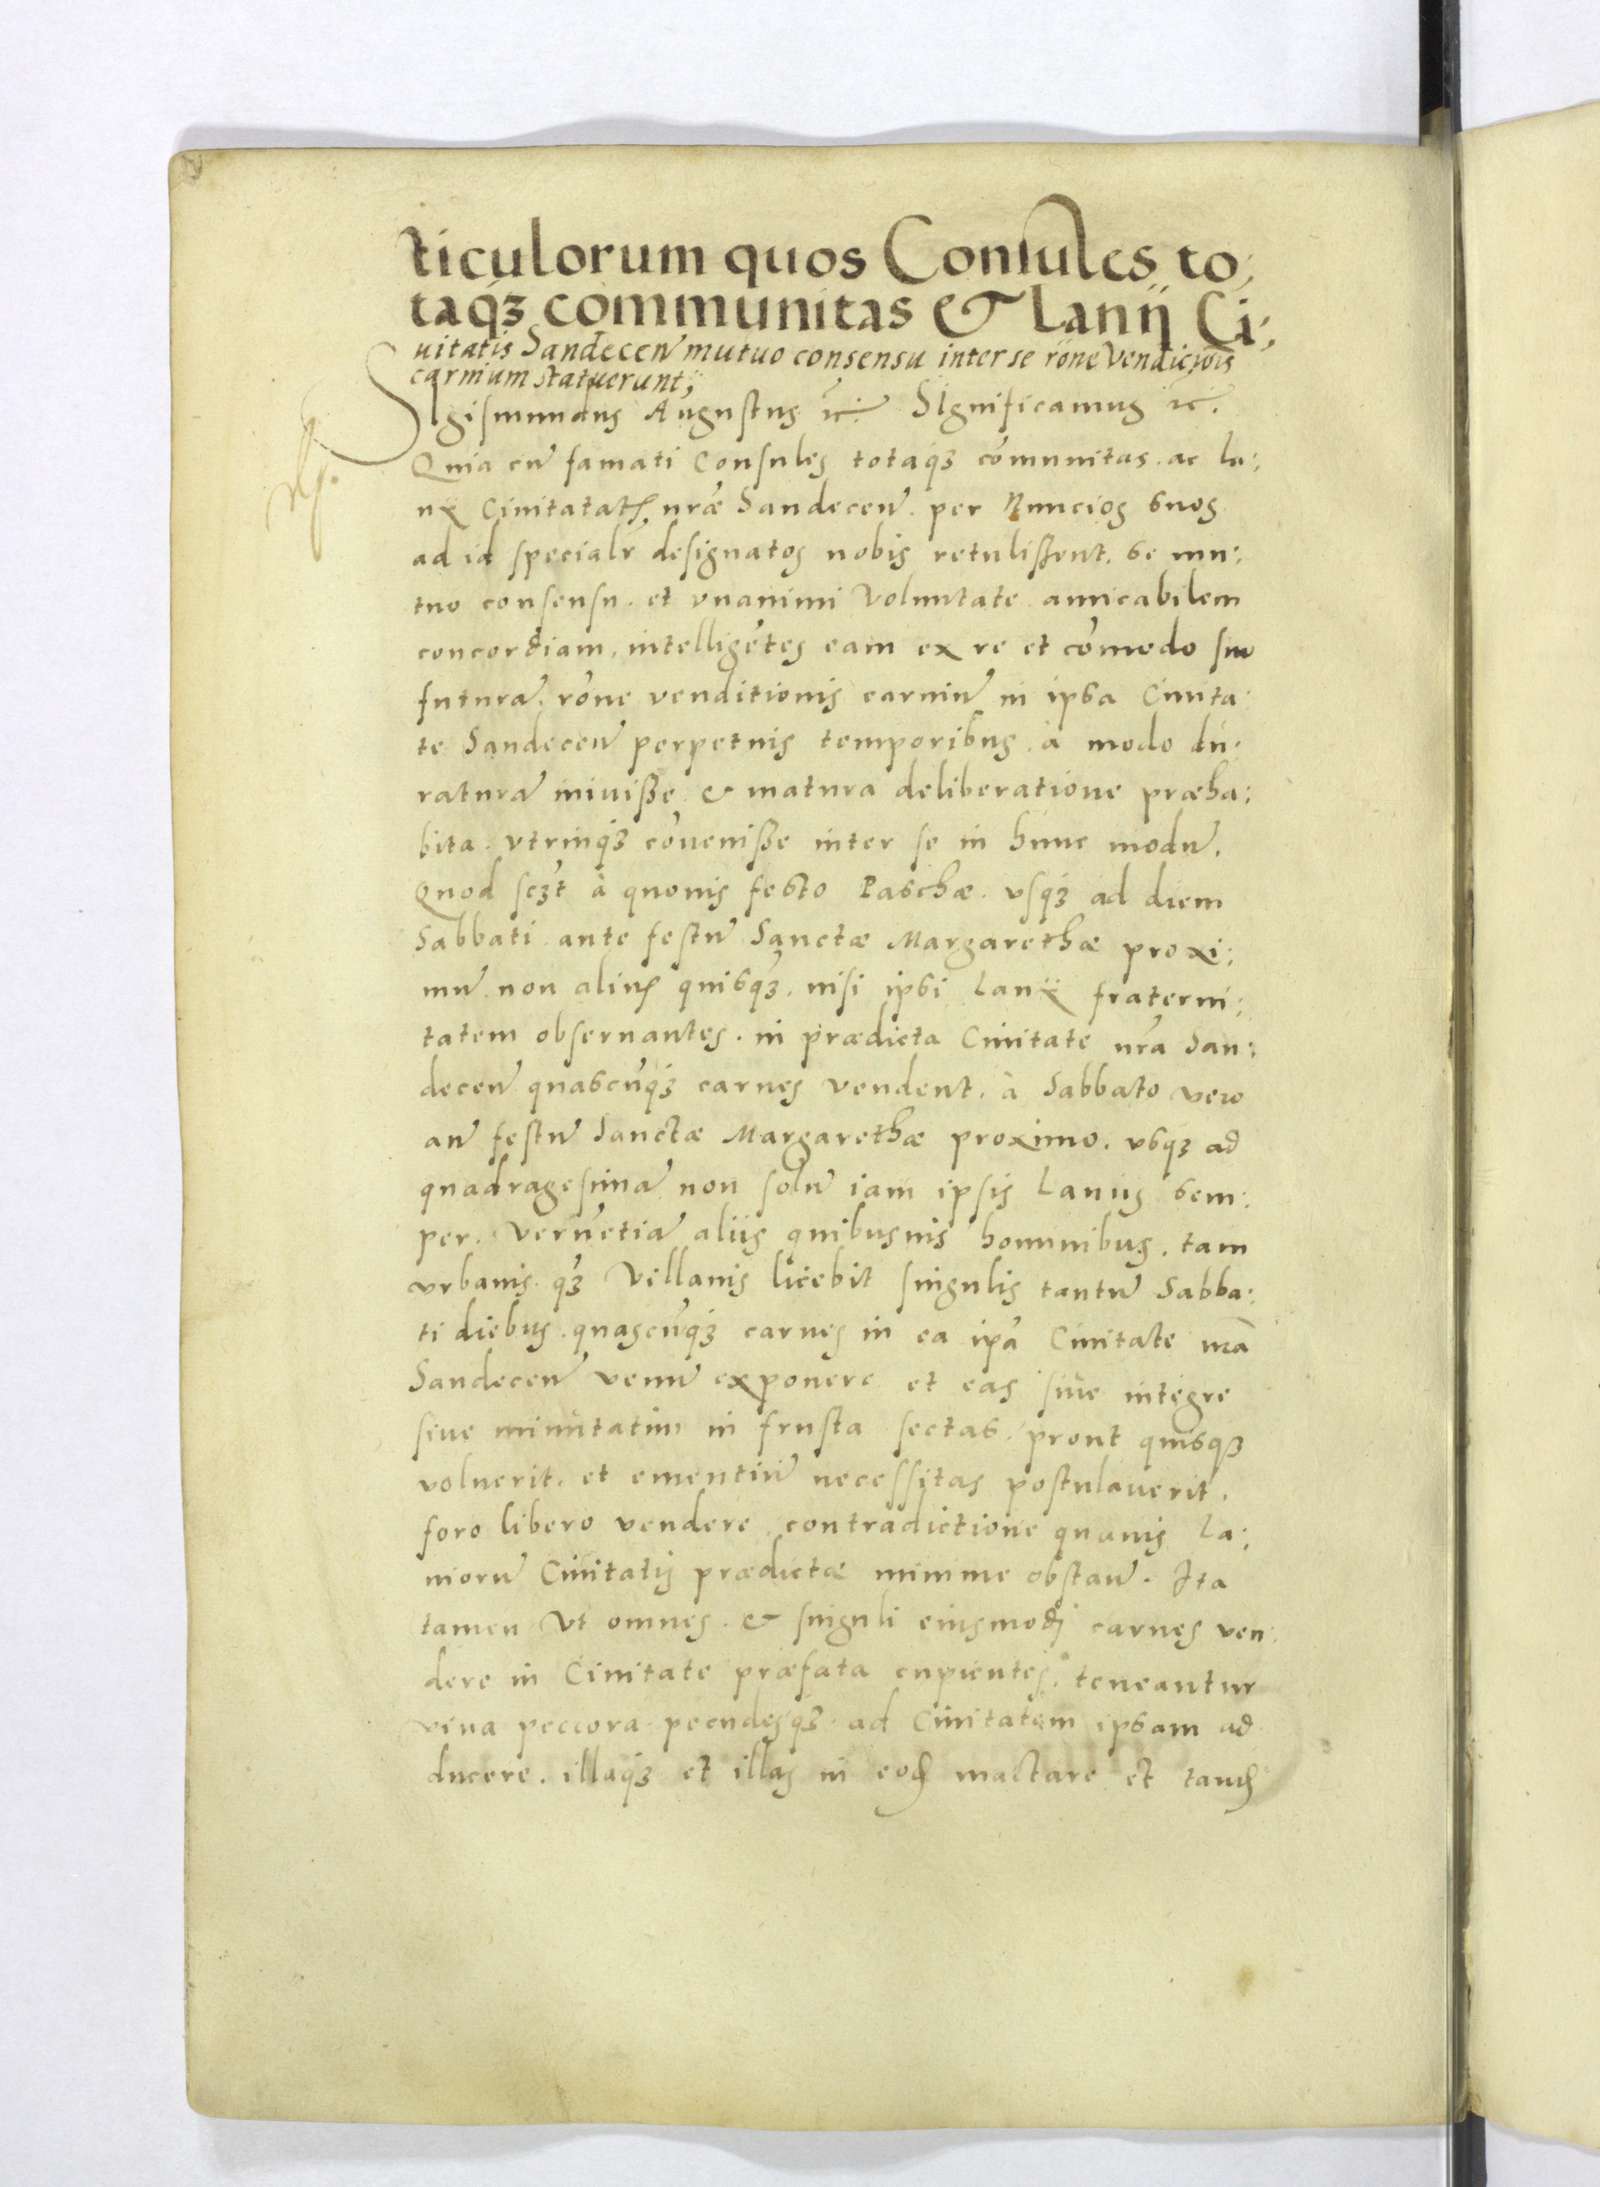 ticulorum quos Consules to:
taqꝫ communitas & Lanij Ci:
uitatis Sandeceñ mutuo consensu inter se rõne vendiciõis
carnium statuerunt;
Sigismundus Augustus ꝛc̃. Significamus ꝛc̃.
Quia cũ famati Consules totaqꝫ cõmunitas. ac la:
nij Ciuitatatis nr̃æ Sandeceñ. per Nuncios suos
ad id specialr̃ designatos nobis retulissent. se mu:
tuo consensu. et vnanimi voluntate amicabilem
concordiam, intelligẽtes eam ex re et cõmodo suo
futurã. rõne venditionis carniũ in ipsa Ciuita:
te Sandeceñ perpetuis temporibus à modo du:
raturã iniuisse & matura deliberatione præha:
bita. vtrinqꝫ cõuenisse inter se in hunc modũ.
Quod scꝫt à quouis festo Paschæ. vsqꝫ ad diem
Sabbati ante festũ Sanctæ Margarethæ proxi:
mũ non alius quisqꝫ. nisi ipsi Lanij fraterni:
tatem obseruantes. in prædicta Ciuitate nr̃a San:
deceñ quascũqꝫ carnes vendent. à Sabbato vero
añ festũ Sanctæ Margarethæ proximo. vsqꝫ ad
quadragesimã non solũ iam ipsis Lanijs sem:
per. verũetiã alijs quibusuis hominibus. tam
vrbanis. qꝫ villanis licebit singulis tantũ Sabba:
ti diebus. quascũqꝫ carnes in ea ip̃a Ciuitate nr̃a
Sandeceñ venũ exponere et eas siue integre
siue minutatim in frusta sectas. prout quisqꝫ
voluerit. et ementiũ necessitas postulauerit.
foro libero vendere contradictione quauis La:
niorũ Ciuitatis prædictæ minime obstañ. Ita
tamen vt omnes. & singuli eiusmodj carnes ven:
dere in Ciuitate præfata cupientes. teneantur
viua peccora pecudesqꝫ ad Ciuitatem ipsam ad
ducere. illaqꝫ et illas in eodẽ mactare et tandẽ